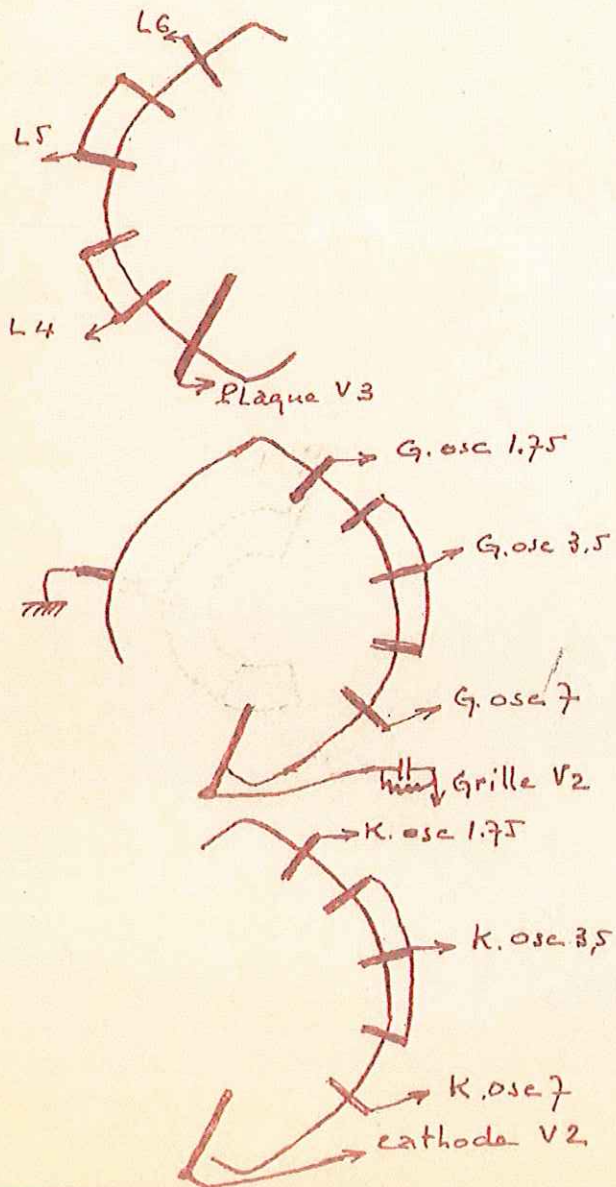 L6
L5
L4
Plaque V3
G. osc 1.75
G. osc 3,5
G. osc 7
Grille V2
K. osc 1.75
K. osc 3,5
K. osc 7
cathode V2